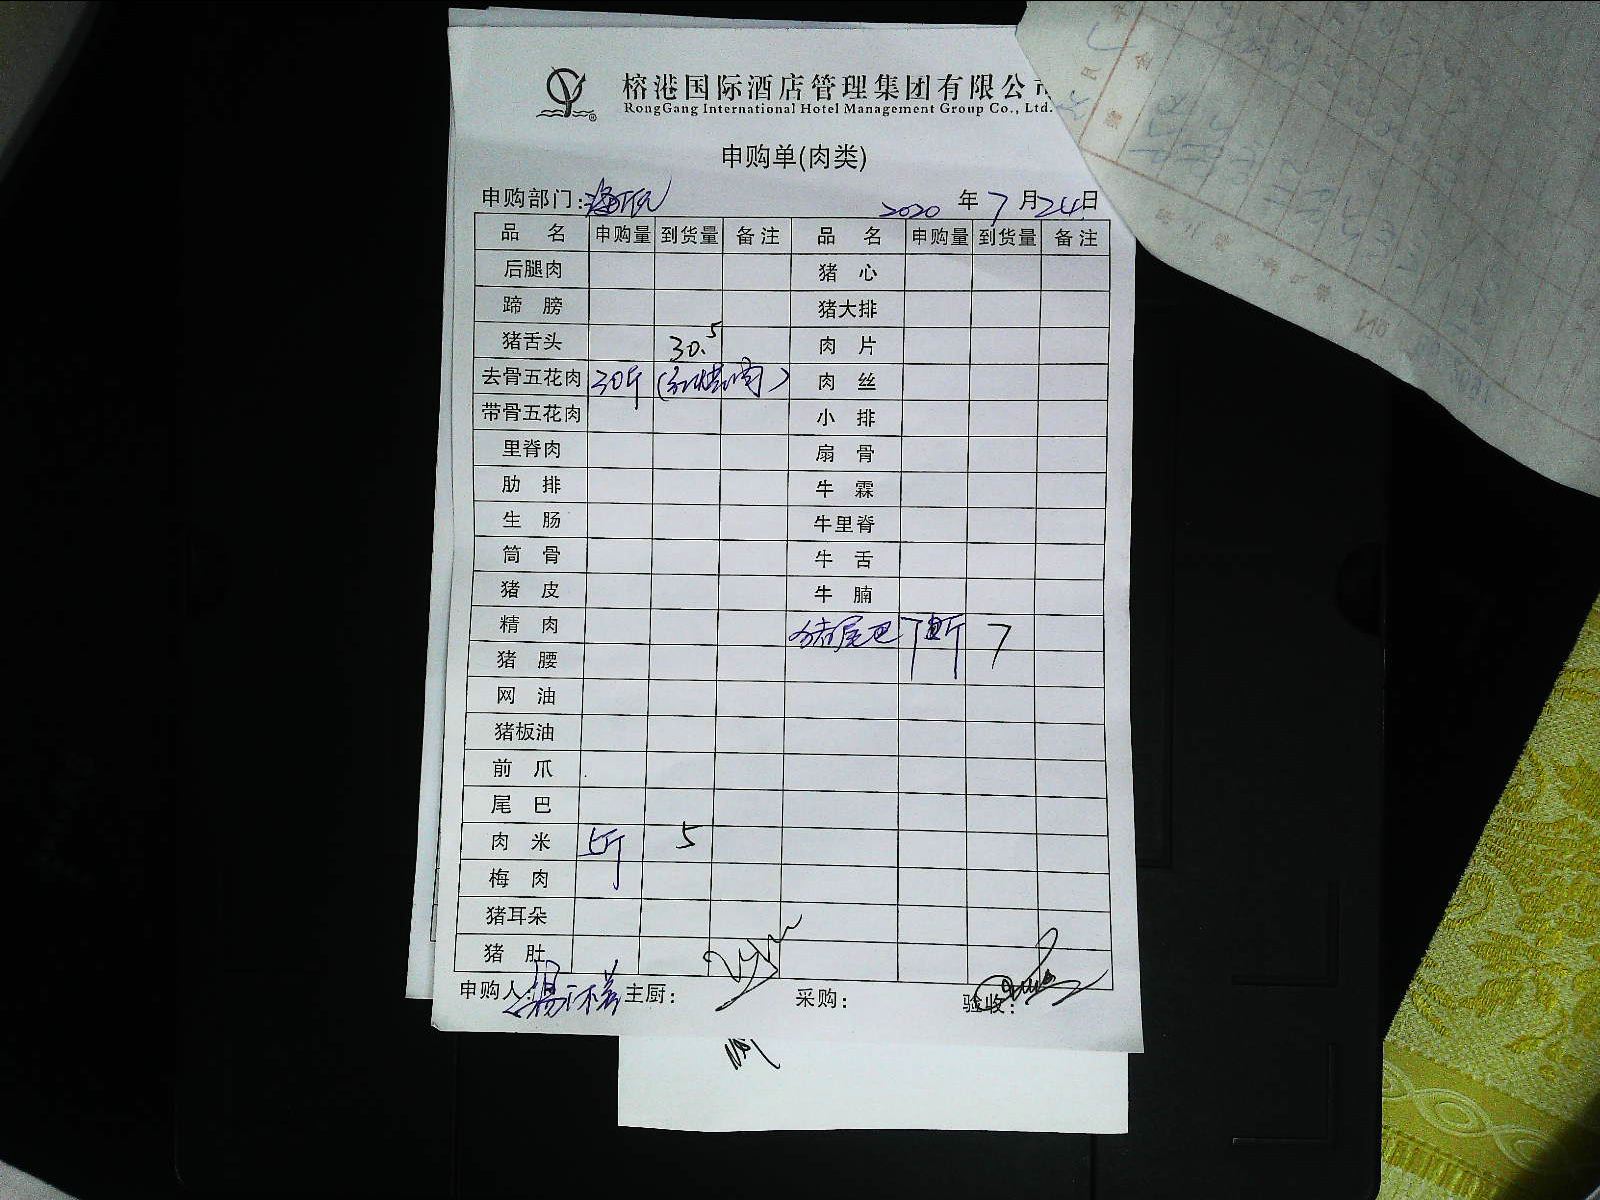 榕港国际酒店管理集团有限公司
RongGang International Hotel Management Group Co., Ltd.
申购单(肉类)
申购部门: 2020 年 7 月 24 日
品 名 申购量 到货量 备注 品 名 申购量 到货量 备注
后腿肉 猪 心
蹄 膀 猪大排
猪舌头 30.5 肉 片
去骨五花肉 30斤 (红烧肉) 肉 丝
带骨五花肉 小 排
里脊肉 扇 骨
肋 排 牛 霖
生 肠 牛里脊
筒 骨 牛 舌
猪 皮 牛 腩
精 肉 猪尾巴 7斤 7
猪 腰
网 油
猪板油
前 爪
尾 巴
肉 米 5斤 5
梅 肉
猪耳朵
猪 肚
申购人: 主厨: 采购: 验收: